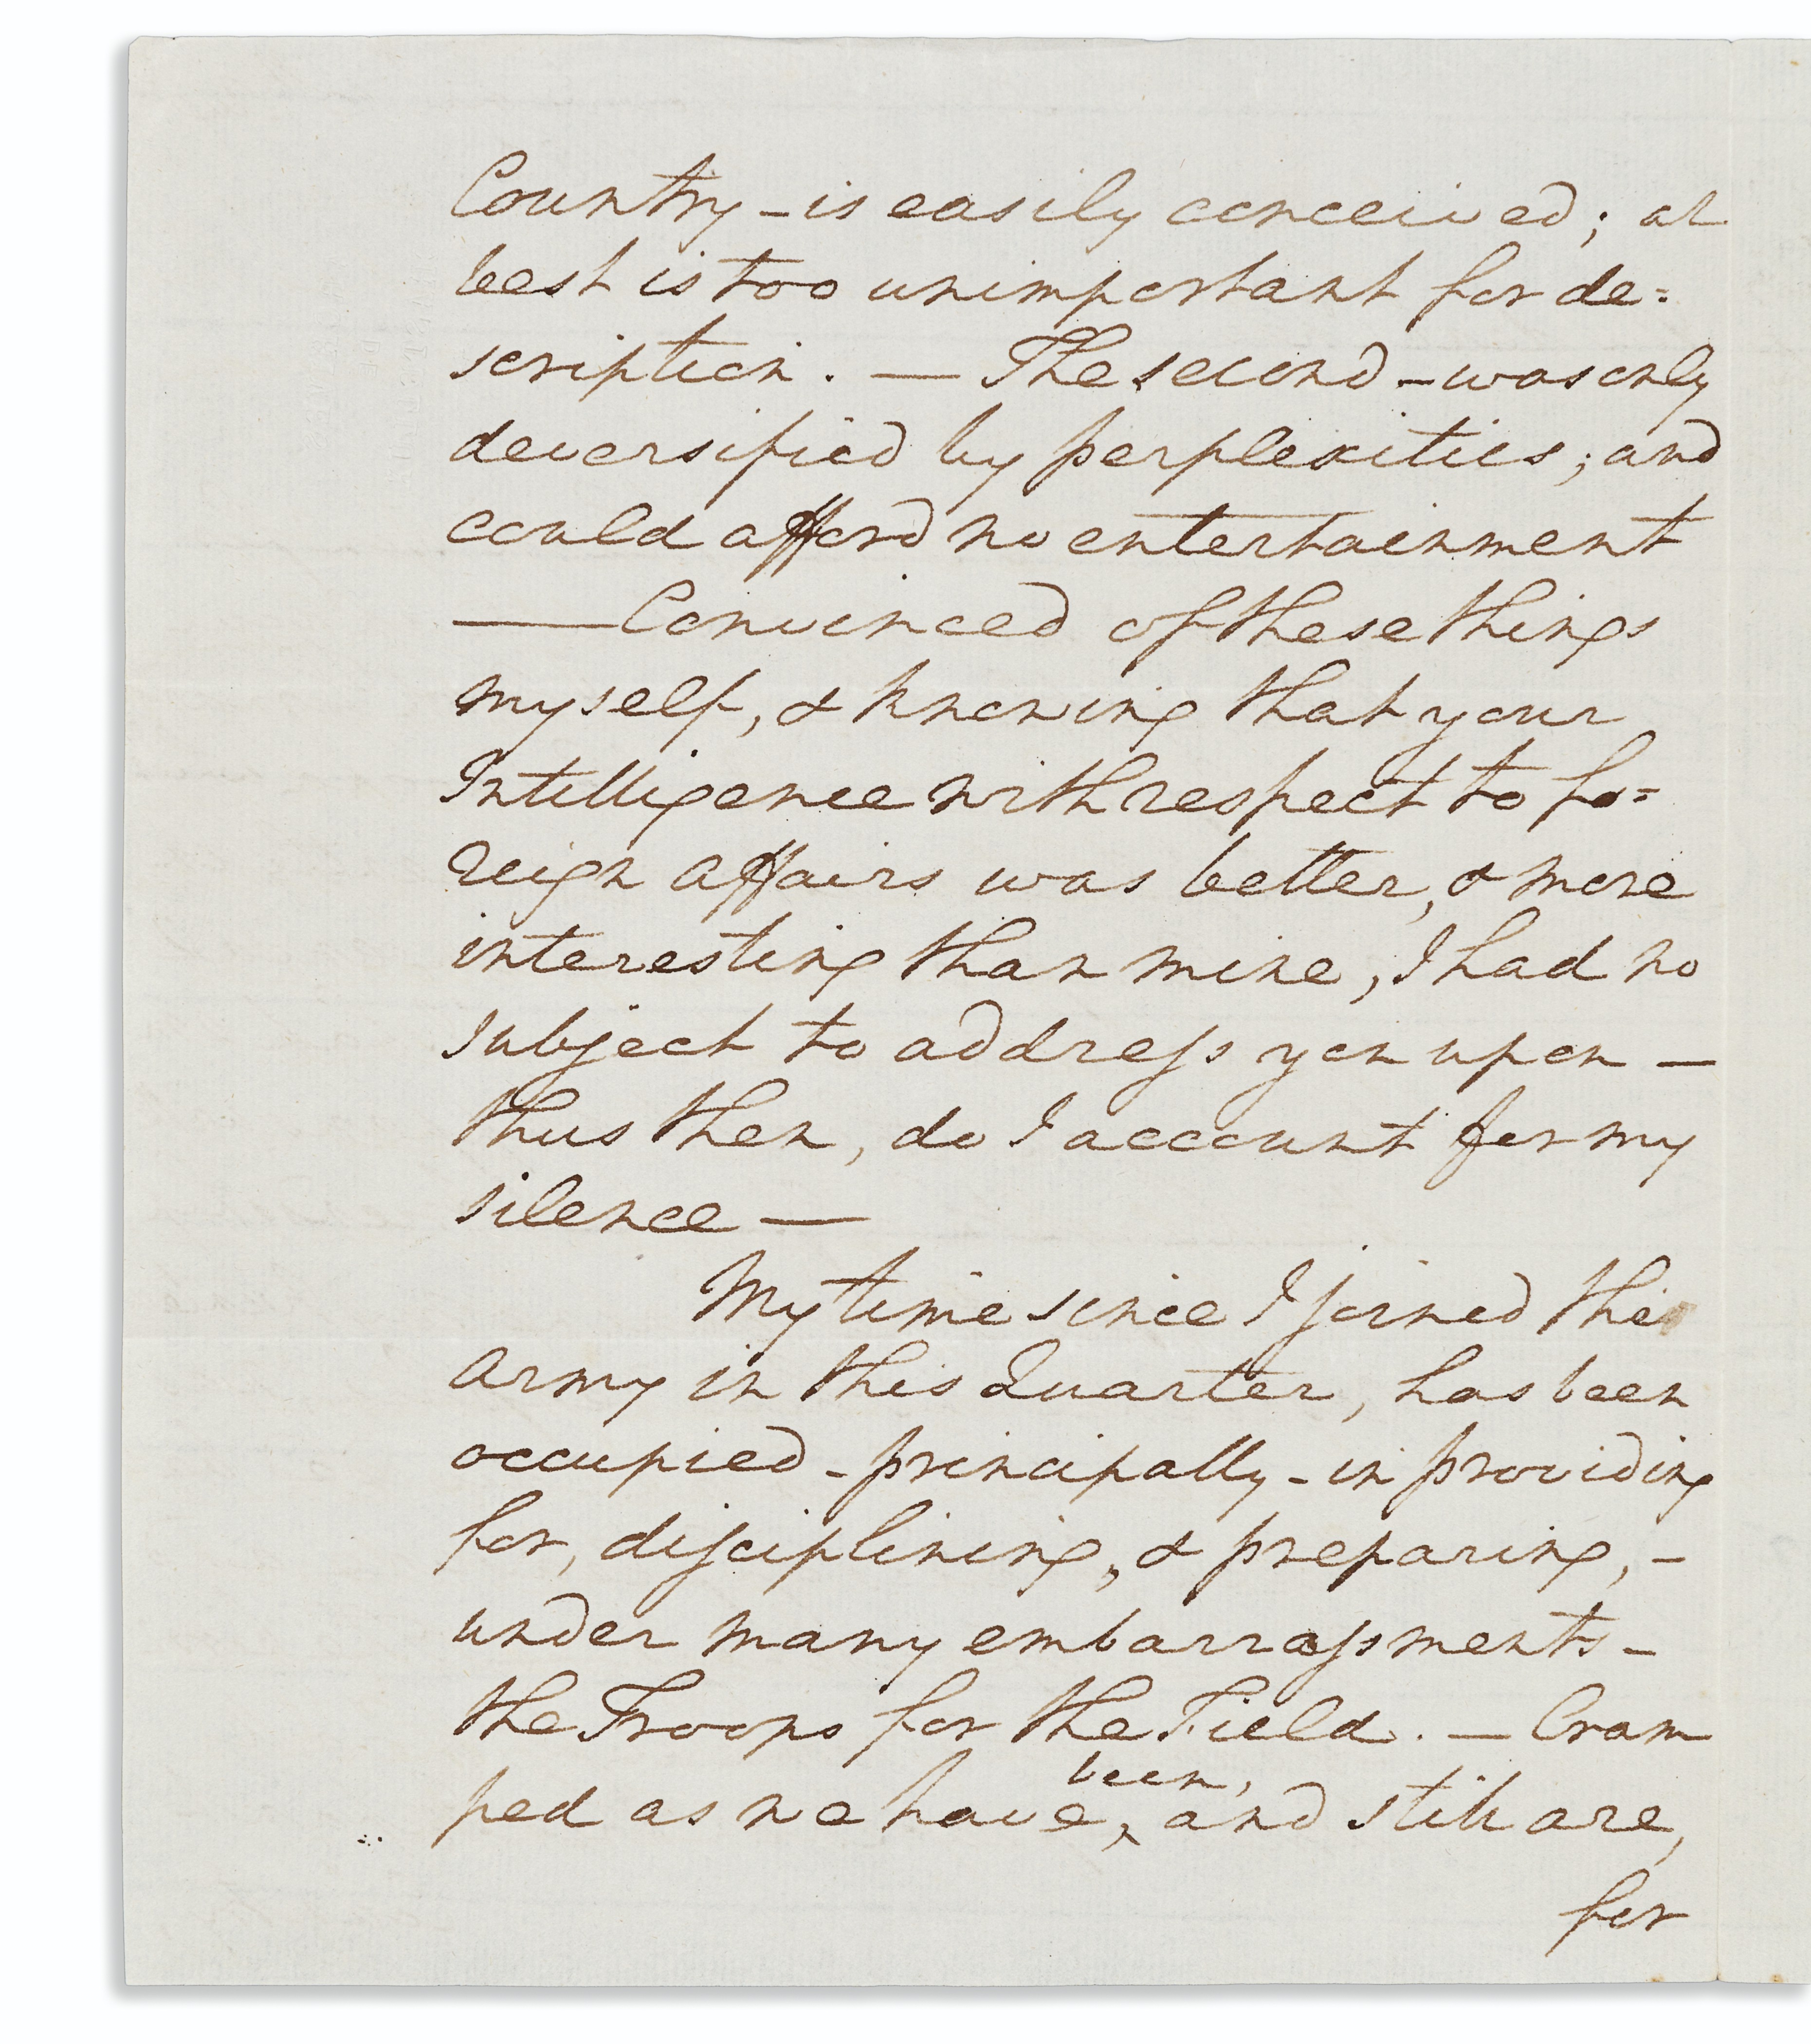 Country – is easily conceived; at
best is too unimportant for de=
scription. — The second – was only
deversified by perplexities; and
could afford no entertainment
— Convinced of these things
myself, & knowing that your
Intelligence with respect to fo=
reign affairs was better, & more
interesting than mine, I had no
subject to address you upon —
thus then, do I account for my
silence —
My time since I joined the
Army in this Quarter, has been
occupied – principally – in providing
for, disciplining, & preparing, –
under many embarrassments –
the Troops for the Field. — Cram
been,
ped as we have ‸ and still are,
for